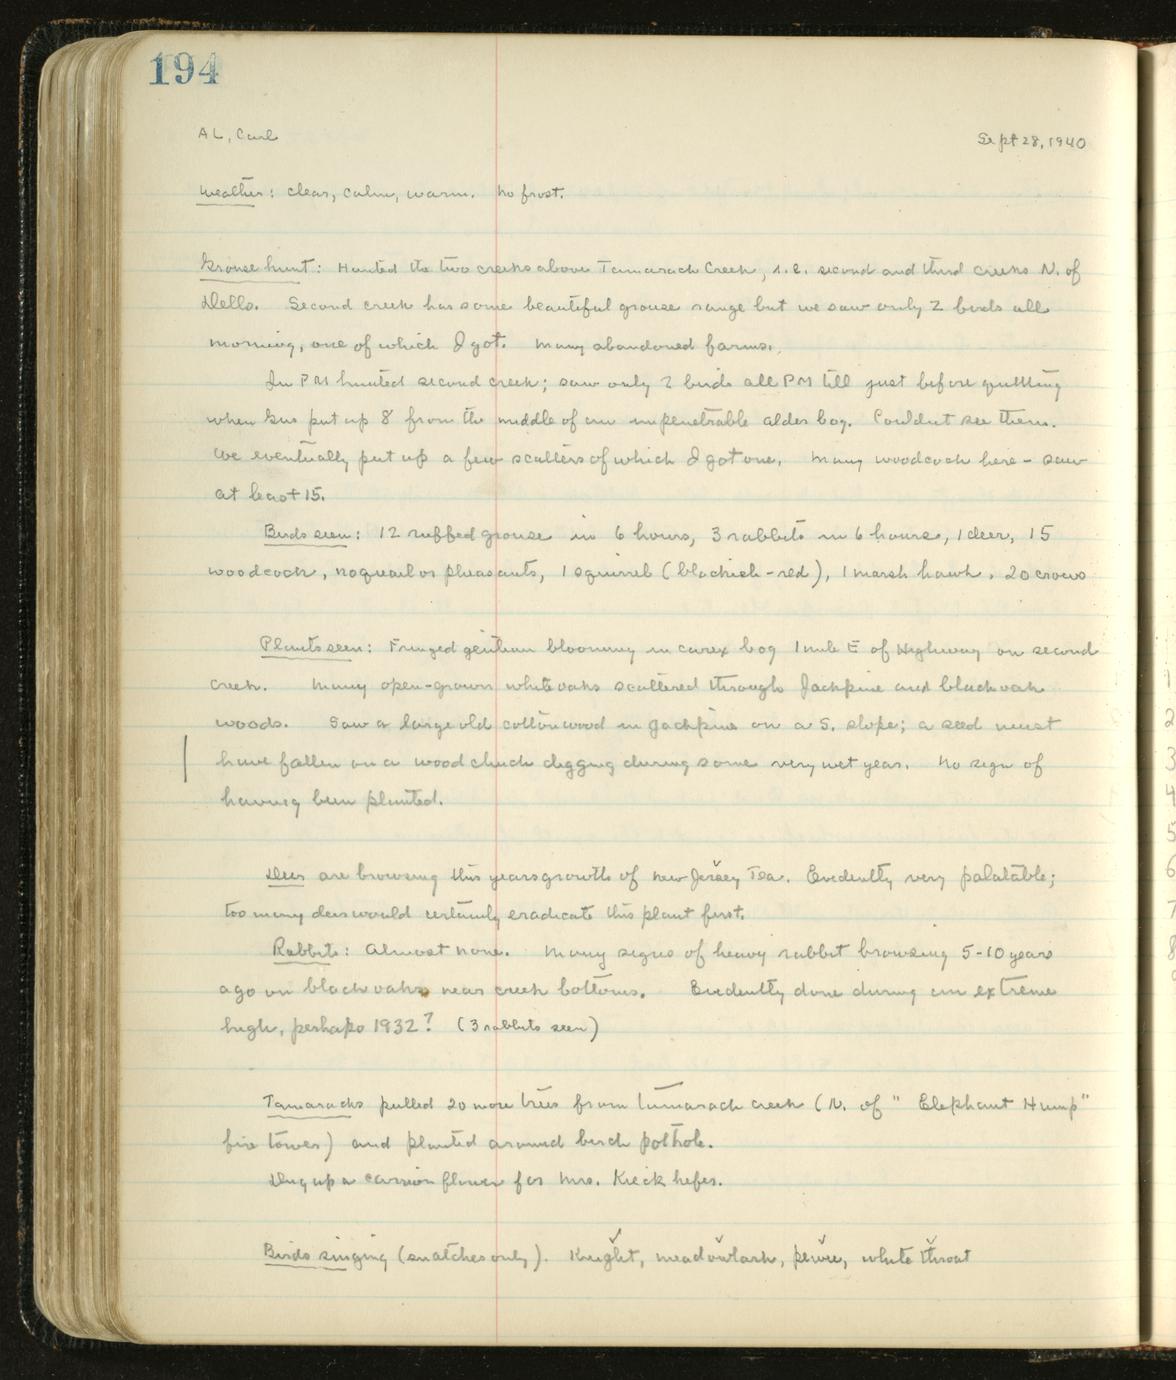 194
AL, Carl
Sept 28, 1940
Weather: clear, calm, warm. No frost.
Grouse hunt: Hunted the two creeks above Tamarack Creek, i.e. second and third creeks N. of
Dells. Second creek has some beautiful grouse range but we saw only 2 birds all
morning, one of which I got. Many abandoned farms.
In PM hunted second creek; saw only 2 birds all PM till just before quitting
when Gus put up 8 from the middle of an impenetrable alder bog. Couldnt see them.
We eventually put up a few scatters of which I got one. Many woodcock here - saw
at least 15.
Birds seen: 12 ruffed grouse in 6 hours, 3 rabbits in 6 hours, 1 deer, 15
woodcock, no quail or pheasants, 1 squirrel (blackish-red), 1 marsh hawk, 20 crows
Plants seen: Fringed gentian blooming in carex bog 1 mile E of Highway on second
creek. Many open-grown white oaks scattered through Jackpine and black oak
woods. Saw a large old cottonwood in Jackpine on a S. slope; a seed must
have fallen on a woodchuck digging during some very wet year. No sign of
having been planted.
Deer are browsing this years growth of New Jersey Tea. Evidently very palatable;
too many deer would certainly eradicate this plant first.
Rabbits: Almost none. Many signs of heavy rabbit browsing 5-10 years
ago on black oaks near creek bottoms. Evidently done during an extreme
high, perhaps 1932? (3 rabbits seen)
Tamaracks pulled 20 more trees from tamarack creek (N. of "Elephant Hump"
fire tower) and planted around birch pothole.
Dug up a carrion flower for Mrs. Kieckhefer.
Birds singing (snatches only). Knight, meadowlark, pewee, white throat